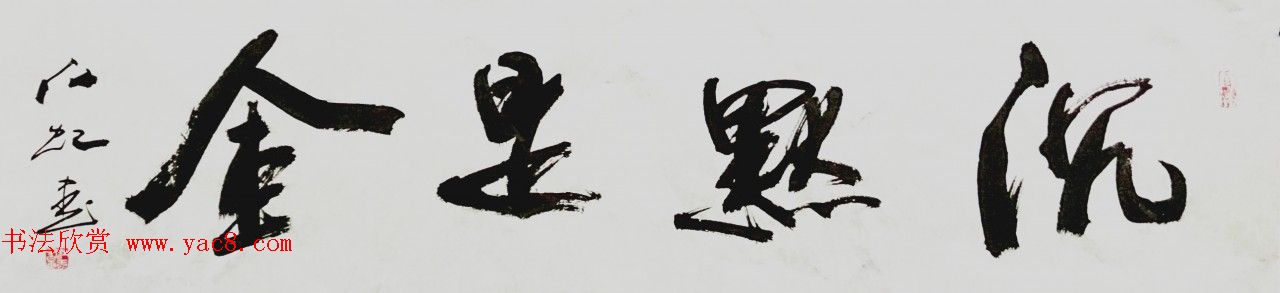 沉默是金
书法欣赏 www.yac8.com